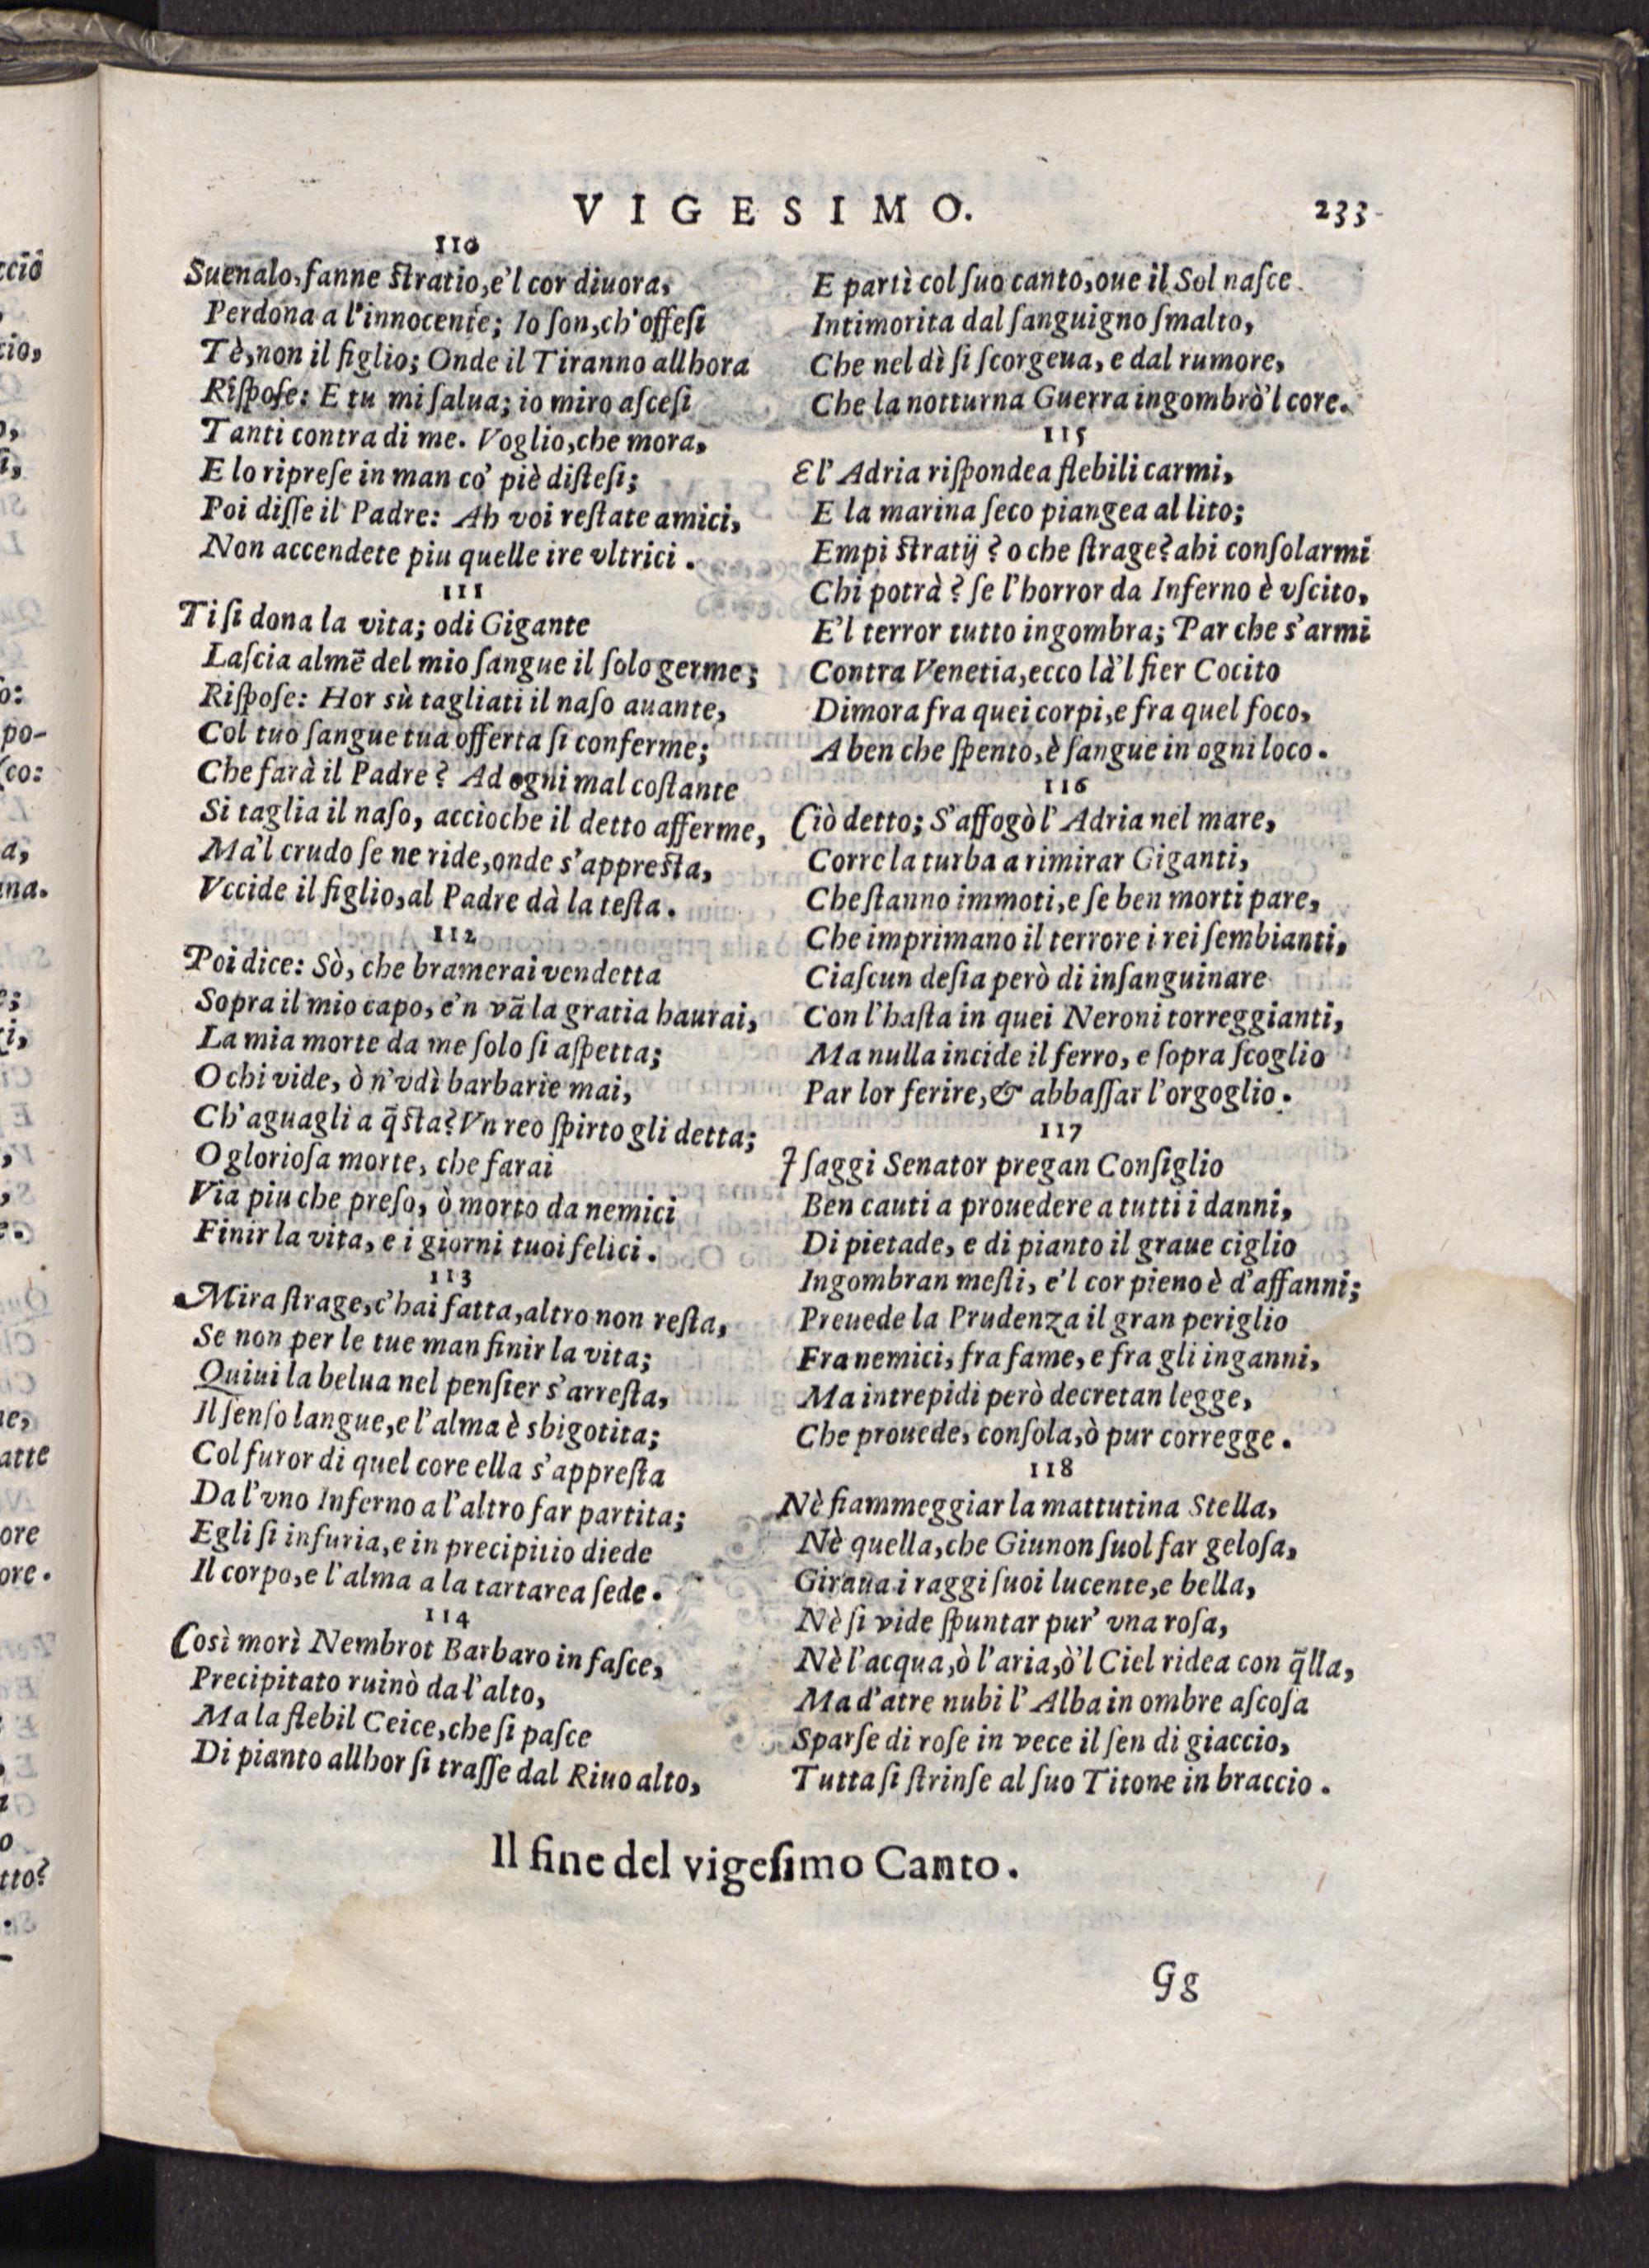 VIGESIMO. 233
110
Suenalo, fanne ſtratio, e'l cor diuora,
Perdona a l'innocente; Io ſon, ch'offeſi
Tè, non il figlio; Onde il Tiranno allhora
Riſpoſe: E tu mi ſalua; io miro aſceſi
Tanti contra di me. Voglio, che mora,
E lo ripreſe in man co' piè diſteſi;
Poi diſſe il Padre: Ah voi reſtate amici,
Non accendete piu quelle ire vltrici.
111
Ti ſi dona la vita; odi Gigante
Laſcia almẽ del mio ſangue il ſolo germe;
Riſpoſe: Hor sù tagliati il naſo auante,
Col tuo ſangue tua offerta ſi conferme;
Che farà il Padre? Ad ogni mal coſtante
Si taglia il naſo, accioche il detto afferme,
Ma'l crudo ſe ne ride, onde s'appreſta,
Vccide il figlio, al Padre dà la teſta.
112
Poi dice: Sò, che bramerai vendetta
Sopra il mio capo, e'n vã la gratia haurai,
La mia morte da me ſolo ſi aſpetta;
O chi vide, ò n'vdì barbarie mai,
Ch'aguagli a q̃ſta? Vn reo ſpirto gli detta;
O glorioſa morte, che farai
Via piu che preſo, ò morto da nemici
Finir la vita, e i giorni tuoi felici.
113
Mira ſtrage, c'hai fatta, altro non reſta,
Se non per le tue man finir la vita;
Quiui la belua nel penſier s'arreſta,
Il ſenſo langue, e l'alma è sbigotita;
Col furor di quel core ella s'appreſta
Da l'vno Inferno a l'altro far partita;
Egli ſi infuria, e in precipitio diede
Il corpo, e l'alma a la tartarea ſede.
114
Così morì Nembrot Barbaro in faſce,
Precipitato ruinò da l'alto,
Ma la flebil Ceice, che ſi paſce
Di pianto allhor ſi traſſe dal Riuo alto,
E partì col ſuo canto, oue il Sol naſce
Intimorita dal ſanguigno ſmalto,
Che nel dì ſi ſcorgeua, e dal rumore,
Che la notturna Guerra ingombrò'l core.
115
E l'Adria riſpondea flebili carmi,
E la marina ſeco piangea al lito;
Empi ſtratij? o che ſtrage? ahi conſolarmi
Chi potrà? ſe l'horror da Inferno è vſcito,
E'l terror tutto ingombra; Par che s'armi
Contra Venetia, ecco là'l fier Cocito
Dimora fra quei corpi, e fra quel foco,
A ben che ſpento, è ſangue in ogni loco.
116
Ciò detto; S'affogò l'Adria nel mare,
Corre la turba a rimirar Giganti,
Che ſtanno immoti, e ſe ben morti pare,
Che imprimano il terrore i rei ſembianti,
Ciaſcun deſia però di inſanguinare
Con l'haſta in quei Neroni torreggianti,
Ma nulla incide il ferro, e ſopra ſcoglio
Par lor ferire, & abbaſſar l'orgoglio.
117
I ſaggi Senator pregan Conſiglio
Ben cauti a prouedere a tutti i danni,
Di pietade, e di pianto il graue ciglio
Ingombran meſti, e'l cor pieno è d'affanni;
Preuede la Prudenza il gran periglio
Fra nemici, fra fame, e fra gli inganni,
Ma intrepidi però decretan legge,
Che prouede, conſola, ò pur corregge.
118
Nè fiammeggiar la mattutina Stella,
Nè quella, che Giunon ſuol far geloſa,
Giraua i raggi ſuoi lucente, e bella,
Nè ſi vide ſpuntar pur' vna roſa,
Nè l'acqua, ò l'aria, ò'l Ciel ridea con q̃lla,
Ma d'atre nubi l'Alba in ombre aſcoſa
Sparſe di roſe in vece il ſen di giaccio,
Tutta ſi ſtrinſe al ſuo Titone in braccio.
Il fine del vigeſimo Canto.
Gg